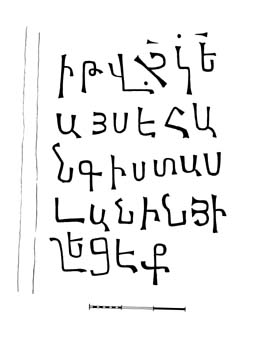 ի թվ ջ կ ե
ա յս է հա
նգիստաս
լանին յի
շեցէք